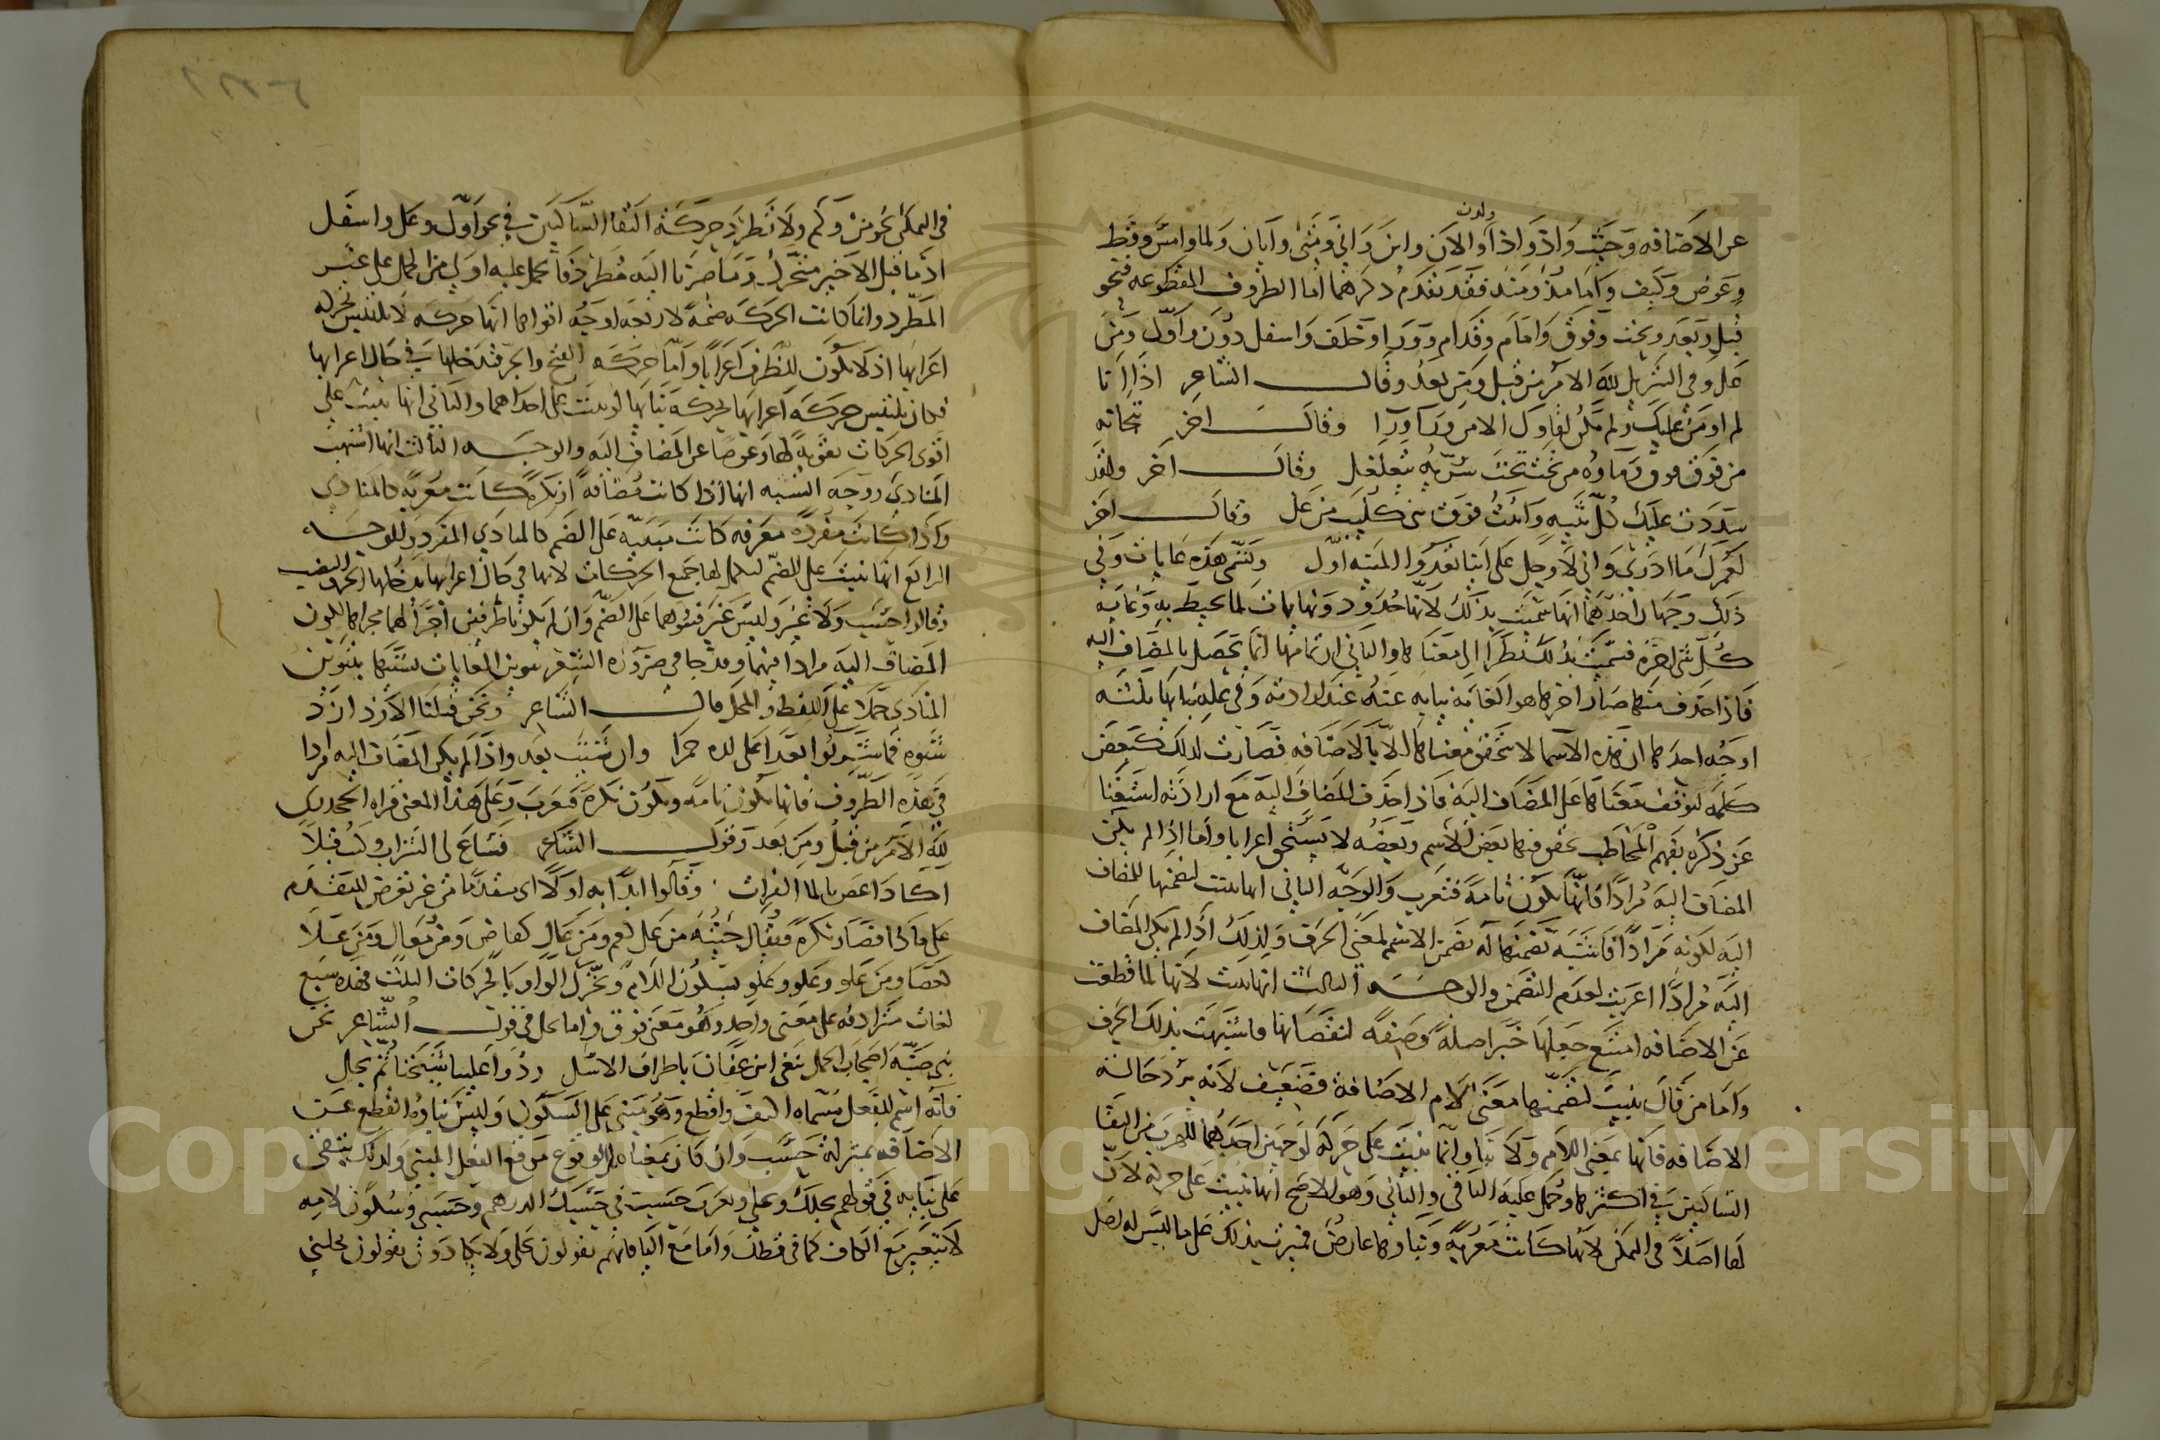 عن الاضافه وحيث واذ واذا والآن واين وانى ومتى وايان ولما وامس وقط
ولدن
وعوض وكيف واما مذ ومنذ فقد تقدم ذكرهما اما الظروف المقطوعه فنحو
قبل وبعد وتحت وفوق وامام وقدام وورا وخلف واسفل ودون واول ومن
عل وفي التنزيل لله الامر من قبل ومن بعد وقال الشاعر اذا انا
لم اومن عليك ولم يكن لقاوك الا من ورا ورا وقال اخر
من فوق وماوه من تحت تحت وقال اخر ولقد
سددت عليك كل ثنيه واتيت فوق بني كليب من عل وقال اخر
لعمرك ما ادري واني لاوجل على اينا تعدوا المنيه اول وتسمى هذه غايات وفي
ذلك وجهان احدهما انها سميت بذلك لانها حدود ونهايات لما تحيط به وغايه
كل شي اخره فسميت بذلك نظرا الى معناها والثاني ان تمامها انما يحصل بالمضاف اليه
فاذا حذف منها صار اخرها هو الغايه نيابه عنه عند ارادته وفي عله بنايها ثلثه
اوجه احدها ان هذه الاسما لا يتحقق معناها الا بالاضافه فصارت لذلك كبعض
كلمه لتوقف معناها على المضاف اليه فاذا حذف المضاف اليه مع ارادته استغنا
عن ذكره بفهم المخاطب بعض الاسم وبعضه لا يستحق اعرابا واما اذا لم يكن
المضاف اليه مرادا فانها تكون تامه فتعرب والوجه الثاني انها بنيت لتضمنها المضاف
اليه لكونه مرادا فاشبه تضمنها له تضمن الاسم لمعنى الحرف ولذلك اذا لم يكن المضاف
اليه مرادا اعربت لعدم التضمن والوجه الثالث انها بنيت لانها لما قطعت
عن الاضافه امتنع جعلها خبرا صلة وصفه لنقصانها فاشبهت بذلك الحرف
واما من قال بنيت لتضمنها معنى لام الاضافه فضعيف لانه يرد حاله
الاضافه فانها بمعنى اللام ولا بنا وانما بنيت على حركه لوجهين احدهما للهرب من التقا
الساكنين في اكثرها وحمل عليه الباقي والثاني وهو الاصح انها بنيت على حركه لان
لها اصلا في التمكن لانها كانت معربه وبناوها عارض فميزت بذلك على ما ليس له اصل
في التمكن نحو من وكم ولا تطرد حركة التقا الساكنين في نحو اول وعل واسفل
اذ ما قبل الاخير متحرك وما صرنا اليه مطرد فالحمل عليه اولى من الحمل على غير
المطرد وانما كانت الحركه ضمة لاربعه اوجه اقواها انها حركه لا تلتبس بحركه
اعرابها اذ لا تكون للظرف اعرابا واما حركه الفتح والجر فتدخلها في حال اعرابها
فكان يلتبس حركه اعرابها بحركه بنايها لو بنيت على احداهما والثاني انها بنيت على
اقوى الحركات تقويه لها وعوضا عن المضاف اليه والوجه الثالث انها اشبهت
المنادى ووجه الشبه انها اذا كانت مضافة او نكرة كانت معربه كالمنادى
واذا كانت مفرده معرفه كانت مبنيه على الضم كالمنادي المفرد والوجه
الرابع انها بنيت على الضم لتكمل لها جميع الحركات لانها في حال اعرابها يدخلها الجر والنصب
وقالوا حسب ولا غير وليس غير فبنوهما على الضم وان لم يكونا ظرفين اجرا لهما مجراها لكون
المضاف اليه مرادا فيهما وقد جا في ضروره الشعر تنوين الغايات تشبيها بتنوين
المنادى حملا على اللفظ والمحل قال الشاعر ونحن قتلنا الازد ازد
شنوه فما شربوا بعدا على لذه خمرا وان شيت بعد واذا لم يكن المضاف اليه مرادا
في هذه الظروف فانها تكون تامه وتكون نكرة فتعرب وعلى هذا المعنى قراه الجحدري
لله الامر من قبل ومن بعد وقول الشاعر فساغ لى الشراب وكنت قبلا
اكاد اغص بالما الفرات وقالوا ابدا به اولا اي متقدما من غير تعرض للتقدم
على ماذا فصار نكرة فيقال جيته من عل كعم ومن عال كقاض ومن معال ومن علا
كعصا ومن علو وعلو وعلو بسكون اللام وتحرك الواو بالحركات الثلث فهذه سبع
لغات مترادفه على معنى واحد وهو معنى فوق واما بجل في قول الشاعر نحن
بني ضبة اصحاب الجمل ننعى ابن عفان باطراف الاسل ردوا علينا شيخنا ثم بجل
فانه اسم للفعل مسماه اكتف واقطع وهو مبني على السكون وليس بناوه لقطع عن
الاضافه بمنزلة حسب وان كان بمعناه لوقوع موقع الفعل المبني ولذلك
على بنايه في قولهم بجلك وعلي وتعرب حسبت في حسبك الدرهم وحسبي وسكون لامه
لا يتغير مع الكاف كما في قطك واما مع اليا فانهم يقولون بجلي ولا يكادون يقولون بجلني